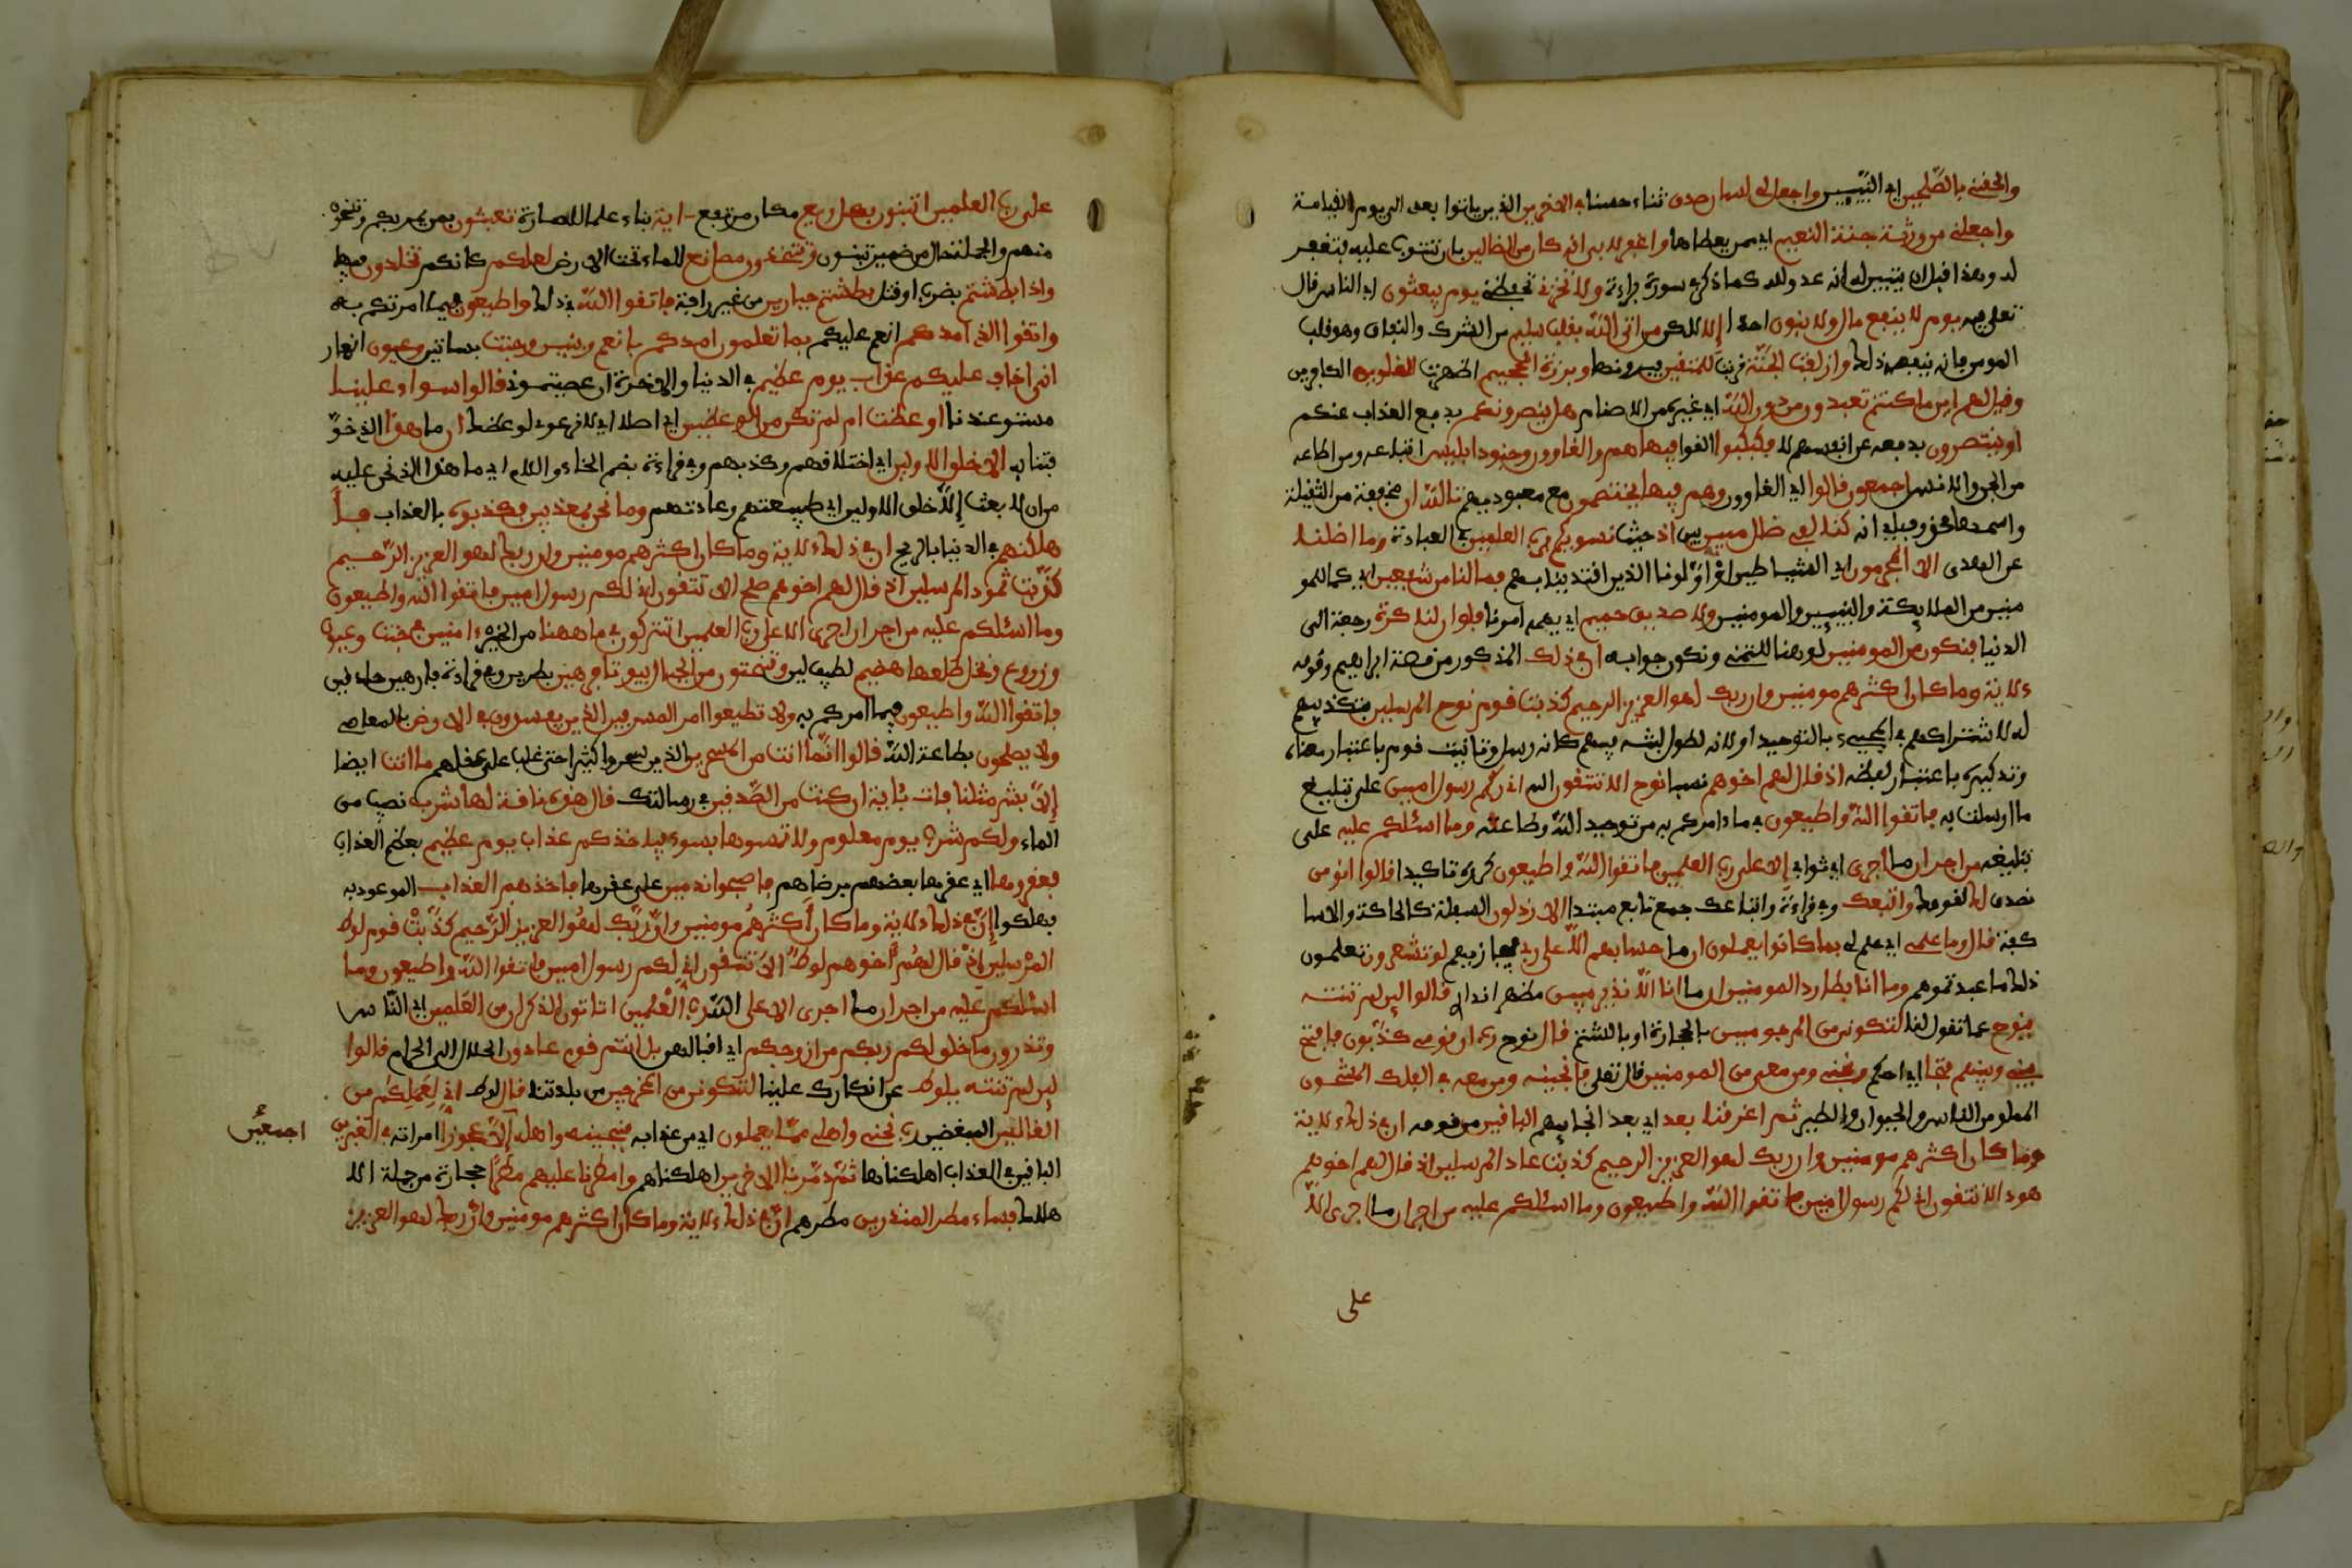 والحقني بالصلحين اي النبيين واجعل لي لسان صدق ثناء حسنا في الاخرين الذين ياتوا بعدي الى يوم القيامة
واجعلني من ورثة جنة النعيم اي ممن يعطاها واغفر لابي انه كان من الضالين بان تتوب عليه فتغفر
له وهذا قبل ان يتبين له انه عدو لله كما ذكر في سورة براءة ولا تخزني تفضحني يوم يبعثون اي الناس قال
تعلى فيه يوم لا ينفع مال ولا بنون احدا إلا لكن من اتى الله بقلب سليم من الشرك والنفاق وهو قلب
المومن فانه ينفعه ذلك وازلفت الجنة قربت للمتقين فيرونها وبرزت الجحيم اظهرت للغاوين الكافرين
وقيل لهم اين ما كنتم تعبدون من دون الله اي غيره من الاصنام هل ينصرونكم بدفع العذاب عنكم
او ينتصرون بدفعه عن انفسهم لا فكبكبوا القوا فيها هم والغاوون وجنود ابليس اتباعه ومن اطاعه
من الجن والانس اجمعون قالوا اي الغاوون وهم فيها يختصمون مع معبوديهم تالله ان مخففة من الثقيلة
واسمها محذوف اي انه كنا لفي ضلل مبين بين اذ حيث نسويكم برب العلمين في العبادة وما اضلنا
عن الهدى الا المجرمون اي الشياطين او اولونا الذين اقتدينا بهم فما لنا من شفعين اي كما للمو
منين من الملايكة والنبيين والمومنين ولا صديق حميم اي يهمه امرنا فلو ان لنا كرة رجعة الى
الدنيا فنكون من المومنين لو هنا للتمني ونكون جوابه ان في ذلك المذكور من قصة ابراهيم وقومه
ءلاية وما كان اكثرهم مومنين وان ربك لهو العزيز الرحيم كذبت قوم نوح المرسلين بتكذيبهم
له لاشتراكهم في المجيء بالتوحيد او لانه لطول لبثه فيهم كانه رسل وتانيث قوم باعتبار معناه
وتذكيره باعتبار لفظه اذ قال لهم اخوهم نسبا نوح الا تتقون الله اني لكم رسول امين على تبليغ
ما ارسلت به فاتقوا الله واطيعون فيما ءامركم به من توحيد الله وطاعته وما اسئلكم عليه على
تبليغه من اجر ان ما اجري اي ثوابي إلا على رب العلمين فاتقوا الله واطيعون كرره تاكيدا قالوا انومن
نصدق لك لقولك واتبعك وفي قراءة واتباعك جمع تابع مبتدا الارذلون السفلة كالحاكة والاسا
كفة قال وما علمي اي علم لي بما كانوا يعملون ان ما حسابهم الا على ربي فيجازيهم لو تشعرون تعلمون
ذلك ما عبدتموهم وما انا بطارد المومنين ان ما انا الا نذير مبين مظهر انذاري قالوا لين لم تنته
ينوح عما تقول لنا لتكونن من المرجومين بالحجارة او بالشتم قال نوح رب ان قومي كذبون فافتح
بيني وبينهم فتحا اي احكم ونجني ومن معي من المومنين قال تعلى فانجينه ومن معه في الفلك المشحون
المملو من الناس والحيوان والطير ثم اغرقنا بعد اي بعد انجايهم الباقين من قومه ان في ذلك ءلاية
وما كان اكثرهم مومنين وان ربك لهو العزيز الرحيم كذبت عاد المرسلين اذ قال لهم اخوهم
هود الا تتقون اني لكم رسول امين فاتقوا الله واطيعون وما اسئلكم عليه من اجر ان ما اجري الا
على
على رب العلمين اتبنون بكل ريع مكان مرتفع ءاية بناء علما للمارة تعبثون بمن يمر بكم وتسخرون
منهم والجملة حال من ضمير تبنون وتتخذون مصانع للماء تحت الارض لعلكم كانكم تخلدون فيها
واذا بطشتم بضرب او قتل بطشتم جبارين من غير رافة فاتقوا الله في ذلك واطيعون فيما امرتكم به
واتقوا الذي امدكم انعم عليكم بما تعلمون امدكم بانعم وبنين وجنت بساتين وعيون انهار
اني اخاف عليكم عذاب يوم عظيم في الدنيا والاخرة ان عصيتموني قالوا سواء علينا
مستو عندنا او عظت ام لم تكن من الوعظين اي اصلا اي لا نرعوي لوعظك ان ما هذا الذي خو
فتنا به الا خلق الاولين اي اختلاقهم وكذبهم وفي قراءة بضم الخاء واللام اي ما هذا الذي نحن عليه
من ان لا بعث إلا خلق الاولين اي طبيعتهم وعادتهم وما نحن بمعذبين فكذبوه بالعذاب فا
هلكنهم في الدنيا بالريح ان في ذلك ءلاية وما كان اكثرهم مومنين وان ربك لهو العزيز الرحيم
كذبت ثمود المرسلين اذ قال لهم اخوهم صلح الا تتقون اني لكم رسول امين فاتقوا الله واطيعون
وما اسئلكم عليه من اجر ان اجري الا على رب العلمين اتتركون في ما ههنا من الخير ءامنين في جنت وعيون
وزروع ونخل طلعها هضيم لطيف لين وتنحتون من الجبال بيوتا فرهين بطرين وفي قراءة فارهين حاذقين
فاتقوا الله واطيعون فيما امركم به ولا تطيعوا امر المسرفين الذين يفسدون في الارض بالمعاصي
ولا يصلحون بطاعة الله قالوا انما انت من المسحرين الذين سحروا كثيرا حتى غلب على عقلهم ما انت ايضا
إلا بشر مثلنا فات بئاية ان كنت من الصدقين في رسالتك قال هذه ناقة لها شرب نصيب من
الماء ولكم شرب يوم معلوم ولا تمسوها بسوء فياخذكم عذاب يوم عظيم بعظم العذاب
فعقروها اي عقرها بعضهم برضاهم فاصبحوا ندمين على عقرها فاخذهم العذاب الموعود به
فهلكوا إن في ذلك ءلاية وما كان أكثرهم مومنين وإن ربك لهو العزيز الرحيم كذبت قوم لوط
المرسلين إذ قال لهم أخوهم لوط الا تتقون اني لكم رسول امين فاتقوا الله واطيعون وما
اسئلكم عليه من اجر ان ما اجري الا على رب العلمين اتاتون الذكران من العلمين اي الناس
وتذرون ما خلق لكم ربكم من ازوجكم اي اقبالهن بل انتم قوم عادون الحلال الى الحرام قالوا
لين لم تنته يلوط عن انكارك علينا لتكونن من المخرجين من بلدتنا قال لوط اني لعملكم من
القالين المبغضين رب نجني واهلي مما يعملون اي من عذابه فنجينه واهله إلا عجوزا امراته في الغبرين
اجمعين
الباقين في العذاب اهلكناها ثم دمرنا الاخرين اهلكناهم وامطرنا عليهم مطرا حجارة من جملة الا
هلاك فساء مطر المنذرين مطرهم ان في ذلك ءلاية وما كان اكثرهم مومنين وان ربك لهو العزيز